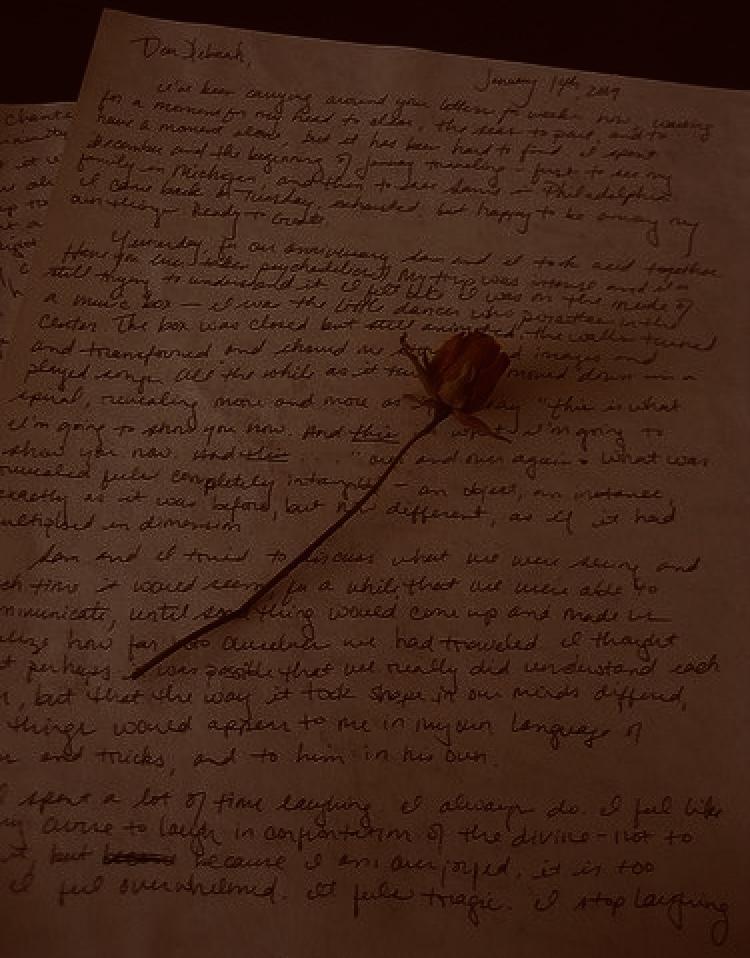 Dear Deborah,
January 19th, 2019
I've been carrying around your letters for weeks now, waiting
for a moment for my head to clear, the seas to part, and to
have a moment alone, but it has been hard to find. I spent
december and the beginning of january traveling - first to see my
family in Michigan, and then to see Sam's in Philadelphia.
I came back on Tuesday, exhausted, but happy to be among my
own things. Ready to create.
Yesterday, for our anniversary Sam and I took acid together.
Have you ever taken psychedelics? My trip was intense and I'm
still trying to understand it. I felt like I was on the inside of
a music box — I was the little dancer who pirouettes in the
center. The box was closed but still animated, the walls turned
and transformed and showed me images and
played songs. All the while as it moved down in a
spiral, revealing more and more as "this is what
I'm going to show you now. And this what I'm going to
show you now. And this . . . ." over and over again. What was
revealed felt completely intangible - an object, an instance,
exactly as it was before, but now different, as if it had
multiplied in dimension
Sam and I tried to discuss what we were seeing and
each time it would seem for a while that we were able to
communicate, until something would come up and made us
realize how far into ourselves we had traveled. I thought
perhaps it was possible that we really did understand each
, but that the way it took shape in our minds differed,
things would appear to me in my own language of
and tricks, and to him in his own.
I spent a lot of time laughing. I always do. I feel like
to laugh in confrontation of the divine - not to
it, but because I am overjoyed, it is too
I feel overwhelmed. It feels tragic. I stop laughing
chante
it
at a